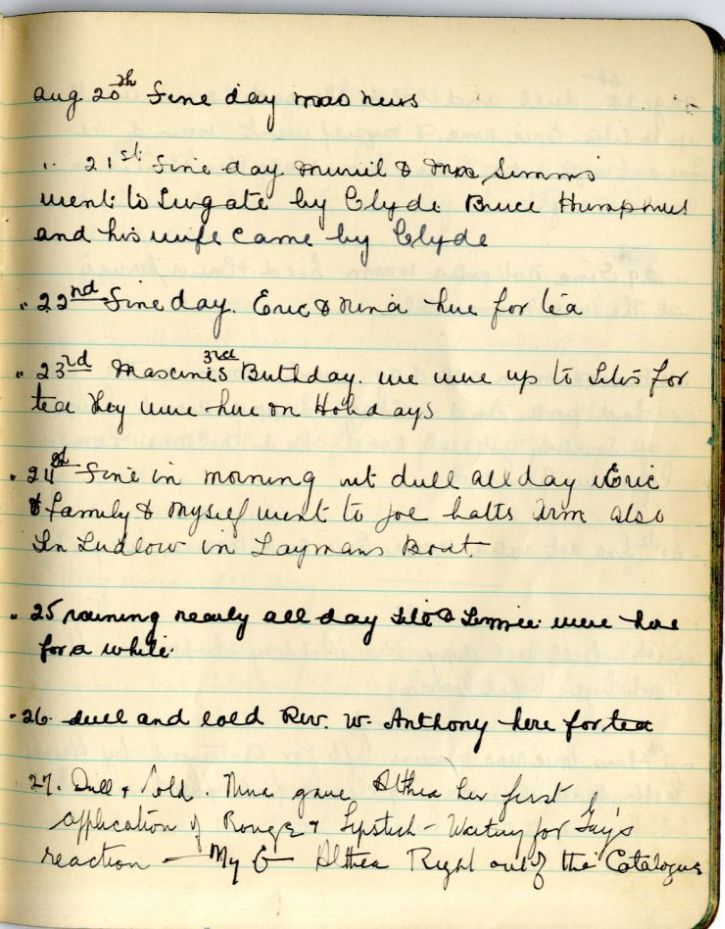 aug 20th Fine day no news
" 21st Fine day Muriel & Mrs Simms
went to Lewisporte by Clyde Bruce Humphries
and his wife came by Clyde
" 22nd Fine day. Eric & Nina here for tea
" 23rd 3rd Birthday. we were up to for
tea they were here on Holidays
" 24 Fine in morning but dull all day Eric
& family & myself went to Joe batts Arm also
Ludlow in Laymans Boat.
" 25 raining nearly all day & were here
for a while.
" 26. dull and cold Rev. W. Anthony here for tea
27. Dull & Cold. Nina gave Althea her first
application of Rouge & Lipstick - Waiting for Fay's
reaction — My G— Althea Right out of the Catalogue